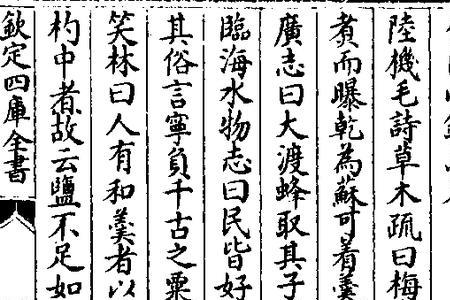 陸機毛詩草木疏曰梅
煑而曝乾為蘇可着羮
廣志曰大渡蜂取其子
臨海水物志曰民皆好
其俗言寧負千古之粟
笑林曰人有和羮者以
杓中者故云鹽不足如
欽定四庫全書